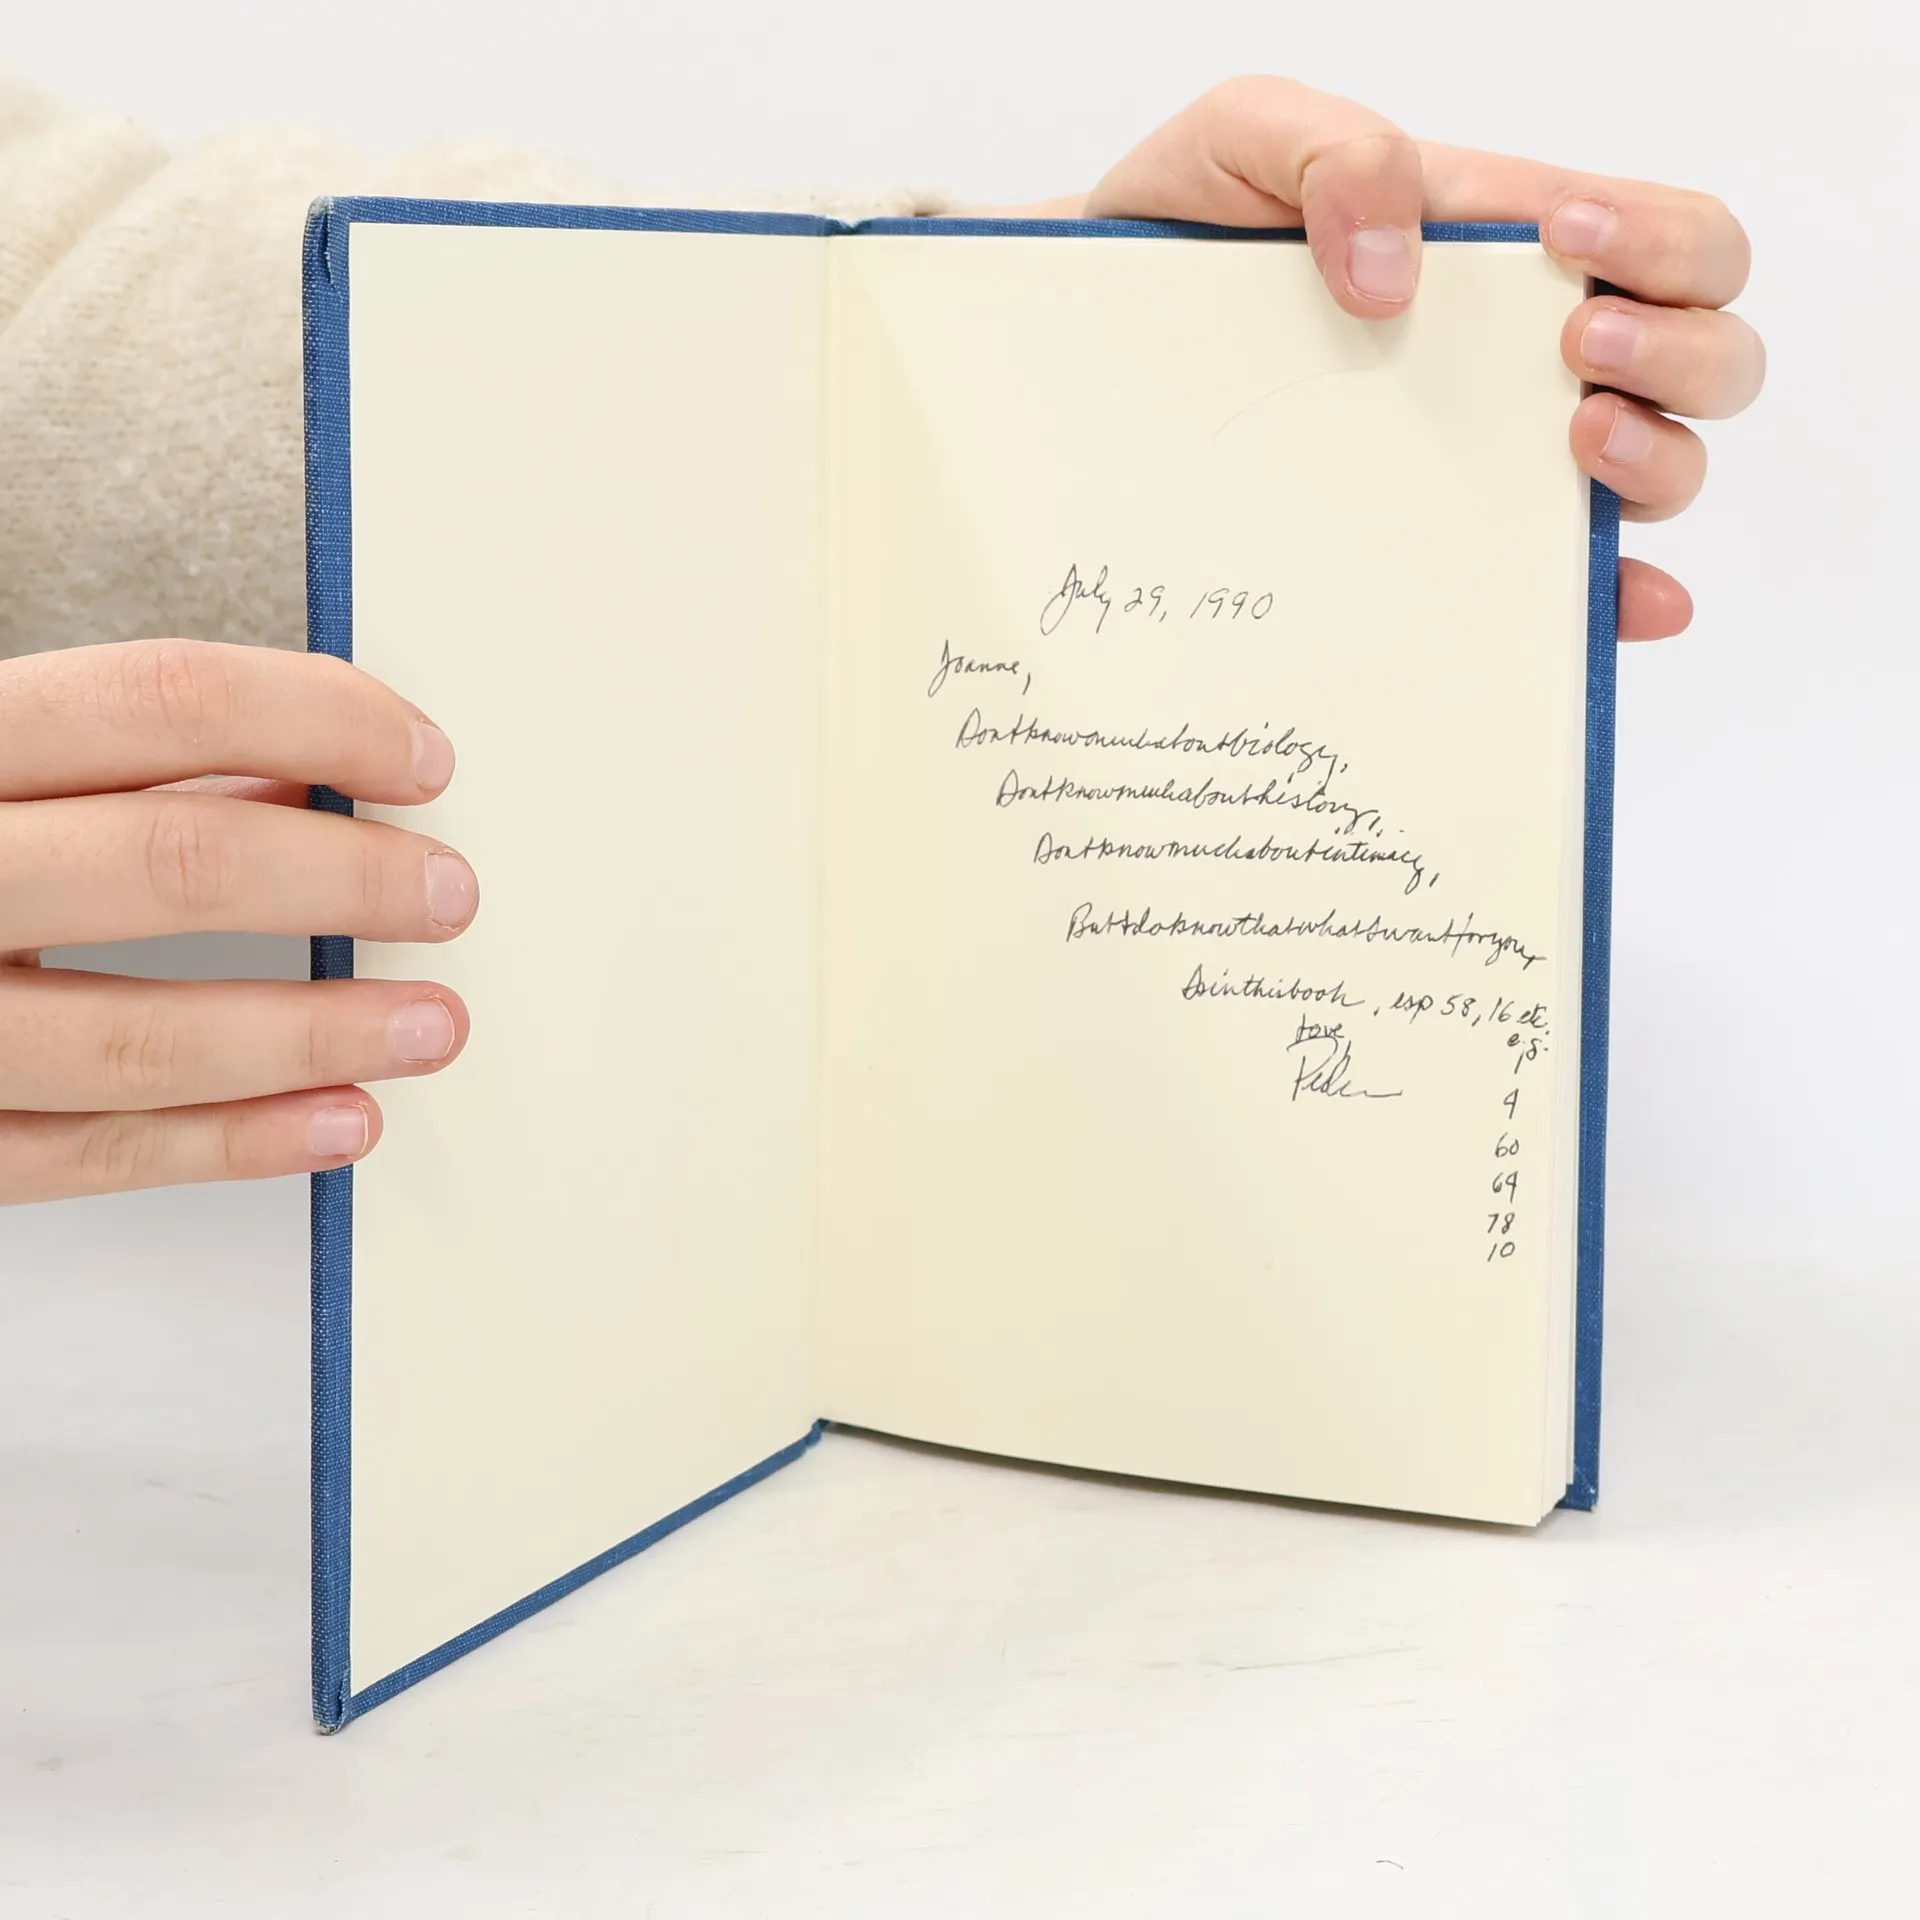 July 29, 1990
Joanne,
Dontknowmuchaboutbiology,
Dontknowmuchabouthistory,
Dontknowmuchaboutintimacy,
ButIdoknowthatwhatIwantforyou,
Isinthisbook, esp 58, 16 etc.
Love
e.g.
4
60
64
78
10